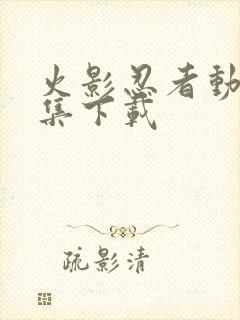 火影忍者動
集下載
疏影清